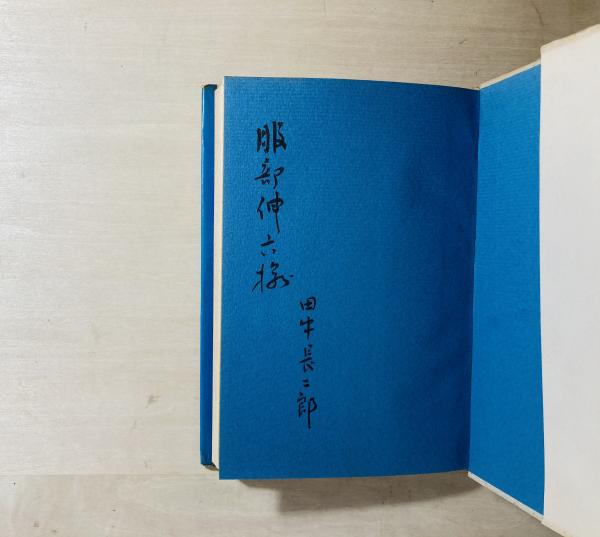 服部伸六様
田中長二郎